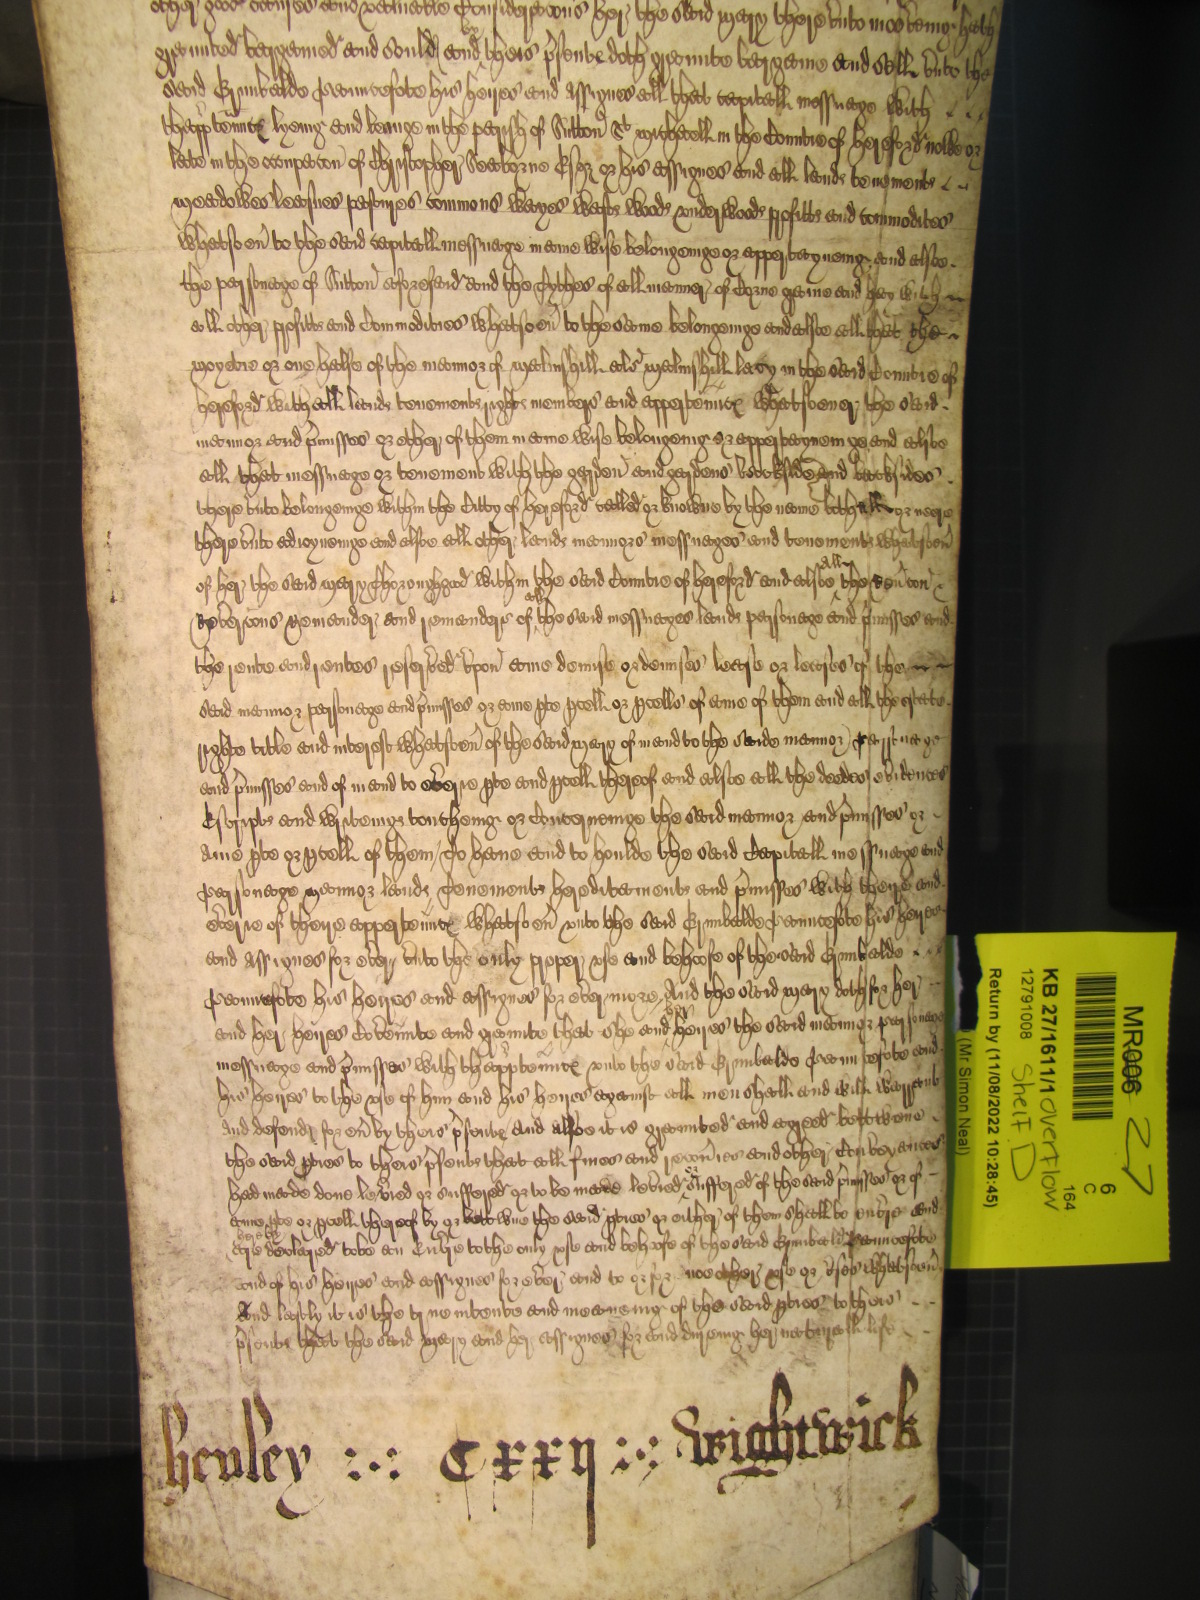 other good causes and valuable Consideracons her the said Mary there unto moveing hath
graunted bargained and sould and by theis p̃sents doth graunte bargaine and sell unto the
said Grimbalde Pauncefote his heires and Assignes all that capitall messuage with
thapp'tennc̃ lyeing and beinge in the parish of Sutton St Michaell in the Countie of Hereford nowe or
late in the occupacon of Christopher Seaborne Esqr or his assignes and all lands tenements
meadowes leasues pastures commons wayes wasts woods underwoods profitts and commodites
whatsoeũ to the said capitall messuage in anie wise belongeinge or appertayneing and alsoe
the parsonage of Sutton aforesaid and the Tythes of all manner of Corne graine and hay with
all other profitts and Commodities whatsoeũ to the same belongeinge and alsoe all that the
moyetie or one halfe of the mannor of Maunshill als Maunshill Lacy in the said Countie of
hereford with all lands tenements rights members and appertennc̃ whatsoever the said
mannor and p̃misses or either of them in anie wise belongeing or appertayneinge and alsoe
all that messuage or tenement with the garden and gardens backside and backsides
there unto belongeinge within the Citty of hereford called or knowne by the name or neere
there unto adioyneinge and alsoe all other lands mannors messuages and tenements whatsoeũ
of her the said Mary Thoroughgood within the said Countie of hereford and alsoe all the reũcon
Reũcons Remainder and remainders of all the said messuages lands parsonage and p̃misses and
the rente and rentes reserved upon anie demise or demises lease or leases of the
said mannor parsonage and p̃misses or anie pte pcell or pcells of anie of them and all the estate
righte title and interest whatsoeũ of the said Mary of in and to the saide mannor parsonage
and p̃misses and of in and to everie pte and pcell thereof and alsoe all the deedes evidences
Escripts and writeings toucheing or Concerneinge the said mannor and p̃misses or
anie pte or pcell of them To have and to houlde the said Capitall messuage and
Parsonage Mannor lands Tenements hereditaments and p̃misses with theire and
everie of theire appertennc̃ whatsoeũ unto the said Grimbalde Pauncefote his heires
and Assignes for ever unto the only proper use and behoofe of the said Grimbalde
Pauncefote his heires and assignes for ever more And the said Mary doth for her
and her heires Covennte and graunte that she and her heires the said mannor parsonage
messuage and p̃misses with thapp'tennc̃ unto the said Grimbalde Pauncefote and
his heires to the use of him and his heires against all men shall and will warrant
and defend for eũ by theis p̃sents And alsoe it is graunted and agreed betweene
the said pties to theis p̃sents that all fines and recoũies and other Conveyances
had made done levied or suffered or to be made levied or suffered of the said p̃misses or of
anie pte or pcell thereof by or betwine the said pties or either of them shall be and
are hereby declared to be an Enure to the only use and behoofe of the said Grimbald Pauncefote
and of his heires and assignes for ever and to or for noe other use or uses whatsoeũ
And lastly it is the true intente and meaneing of the said pties to theis
p̃sents that the said Mary and her assignes for and dureing her naturall life
henley CXXII wightwick
MR006
27
KB 27/1611/1 overflow
12791008 Shelf D
6
C
164
Return by (11/08/2022 10:28:45)
(Mr. Simon Neal)